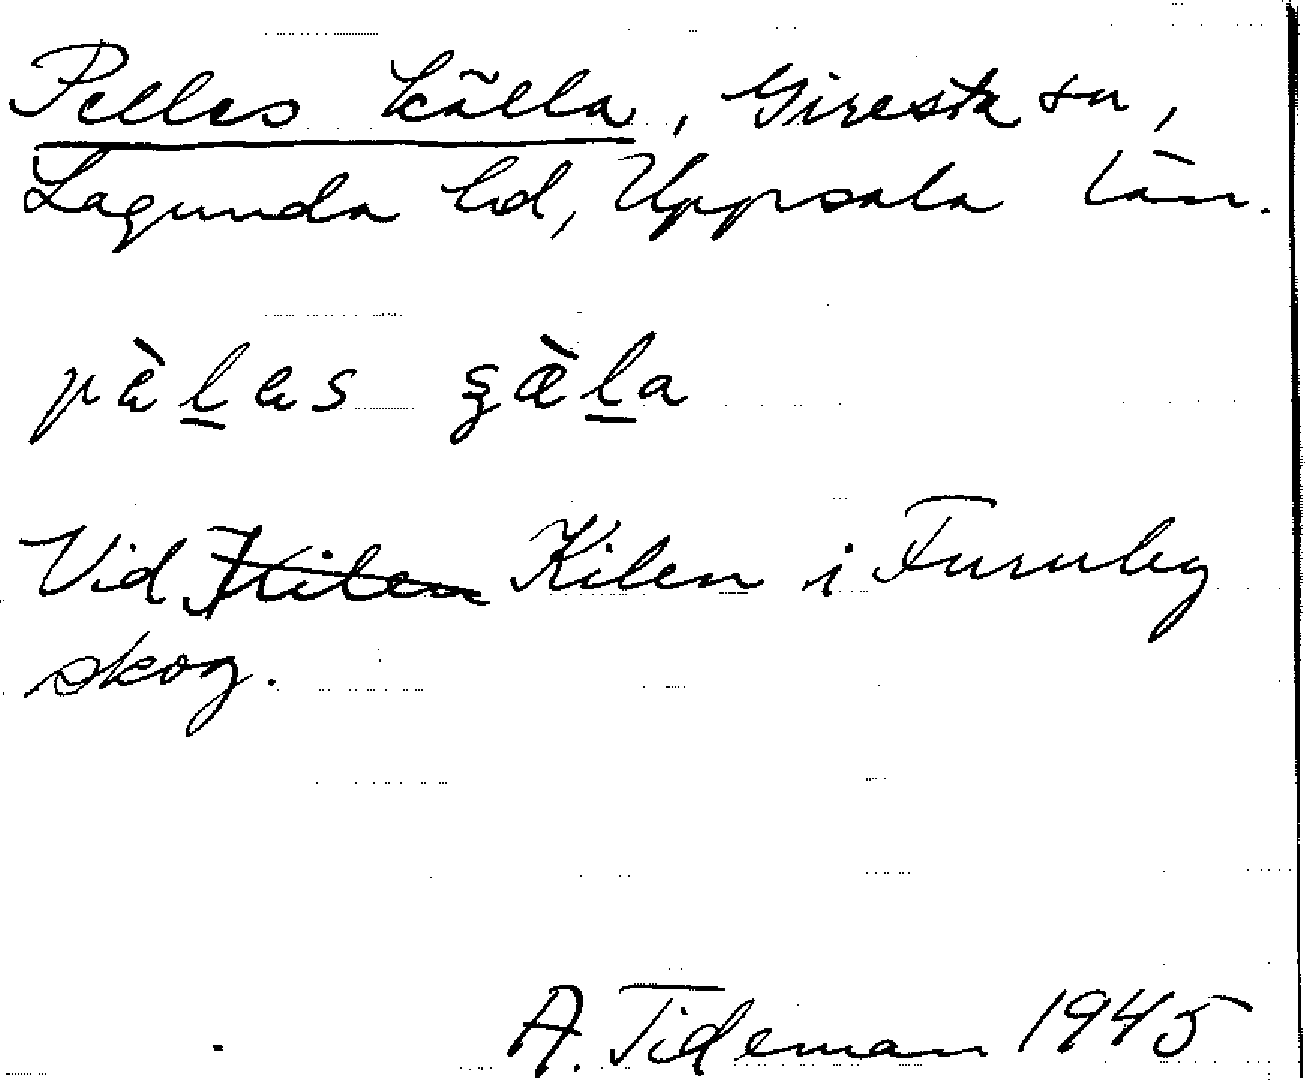 Pelles källa, Giresta sn,
Lagunda hd, Uppsala län.
pæ̀l̠as ʂæ̀l̠a
Vid Kilen Kilen i Furuby
skog.
A. Tideman 1945